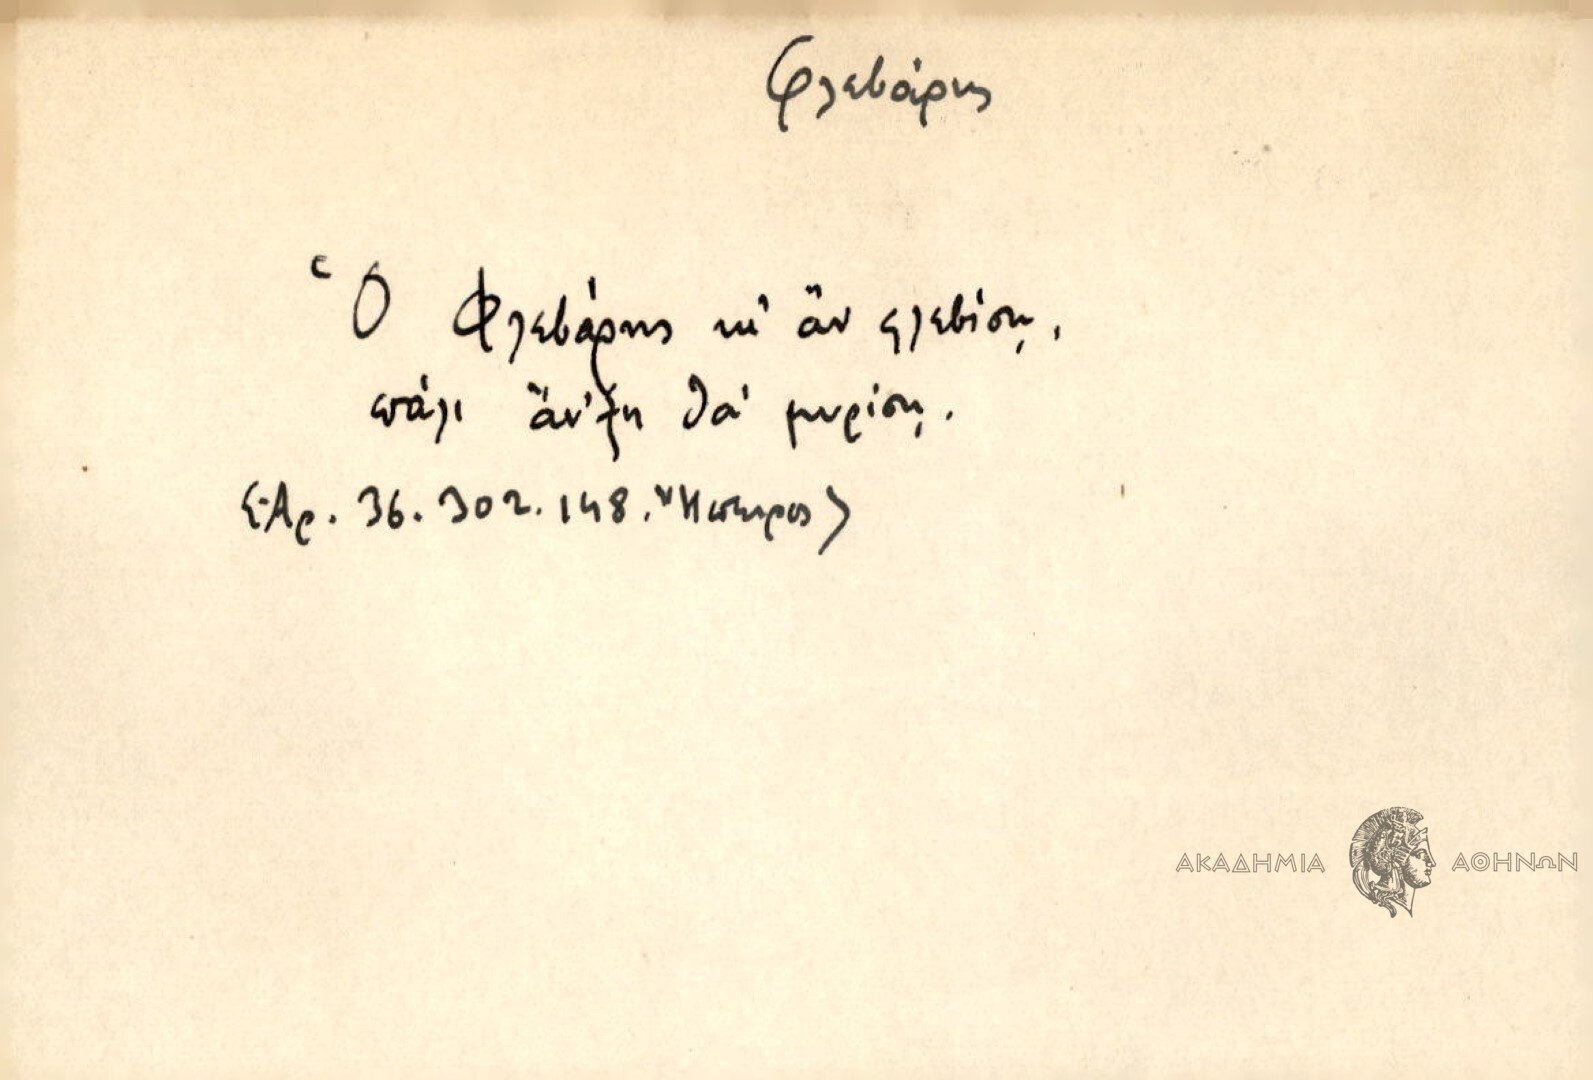 Φλεβάρης
Ὁ Φλεβάρης κι' ἂν φλεβίσῃ,
πάλι ἄν'ξη θά μυρίσῃ.
Ἀρ. 36. 302. 148. Ἤπειρος)
ΑΚΑΔΗΜΙΑ ΑΘΗΝΩΝ